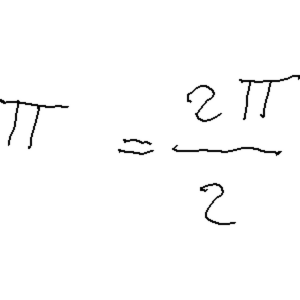 π = 2π/2